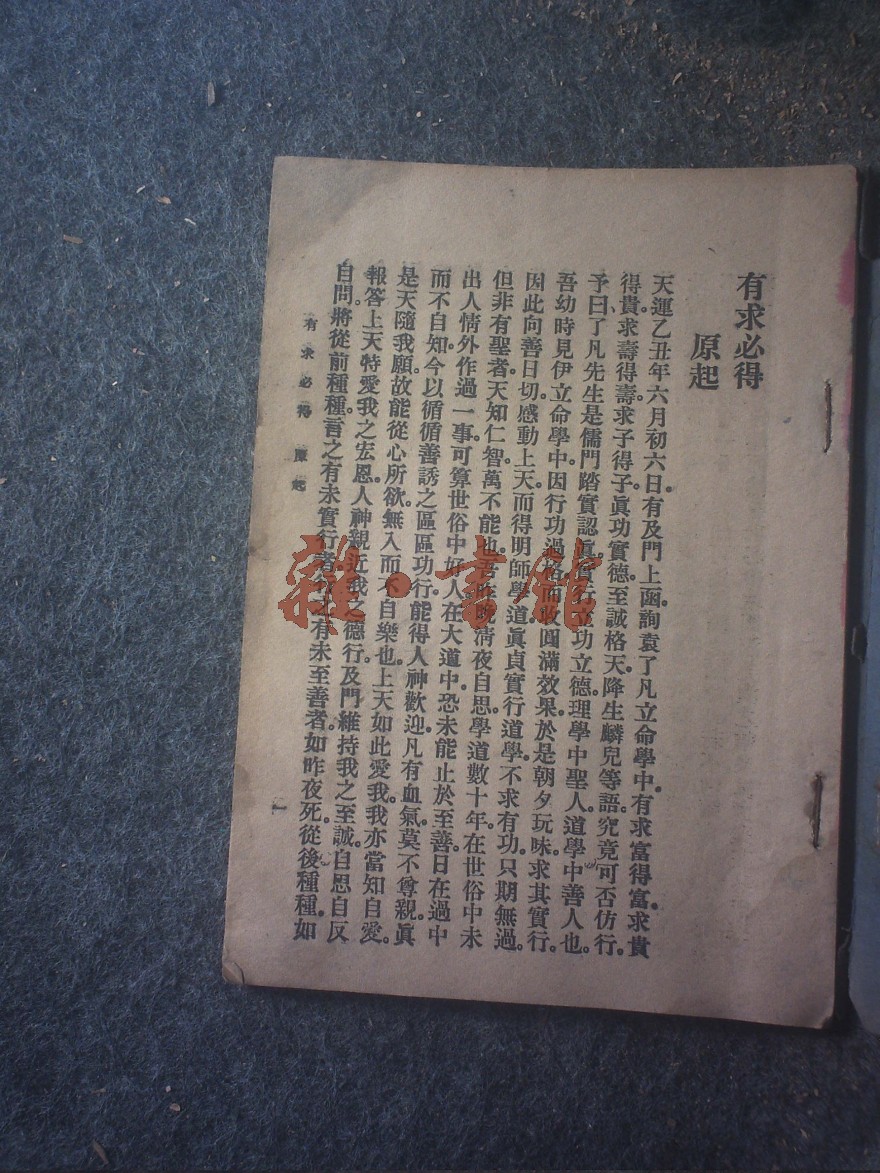 有求必得
原起
天運乙丑年六月初六日有及門上函詢袁了凡立命學中有求富得富。求貴
得貴。求壽得壽求子得子眞功實德至誠格天降生麟兒等語。究竟可否仿行。
予曰了凡先生是儒門踏實認眞實行立功立德。理學中聖人。道學中善人也。
吾幼時見伊立命學中。因行功過格而收圓滿效果於是朝夕玩味。求其實行。
因此向善日切。感動上天。而得明師學道眞貞實行道學。不求有功。只期無過。
但非有聖者。天知仁智萬不能也。吾昨晚清夜自思。學道數十年。在世俗中未
出人情外作過一事。可算世俗中好人。在大道中。恐未能止於至善。日在過中
而不自知。今以循循善誘之區區功行。能得人神歡迎。凡有血氣。莫不尊親。眞
是天隨我願。故能從心所欲。無入而不自樂也。上天如此愛我。我亦當知自愛。
報答上天特愛我之宏恩。人神親近我之德行。及門維持我之至誠。自思自反
自問。將從前種種。言之有未實行者。行之有未至善者。如昨夜死。從後種種。如
有求必得 原起
一
雜·書館